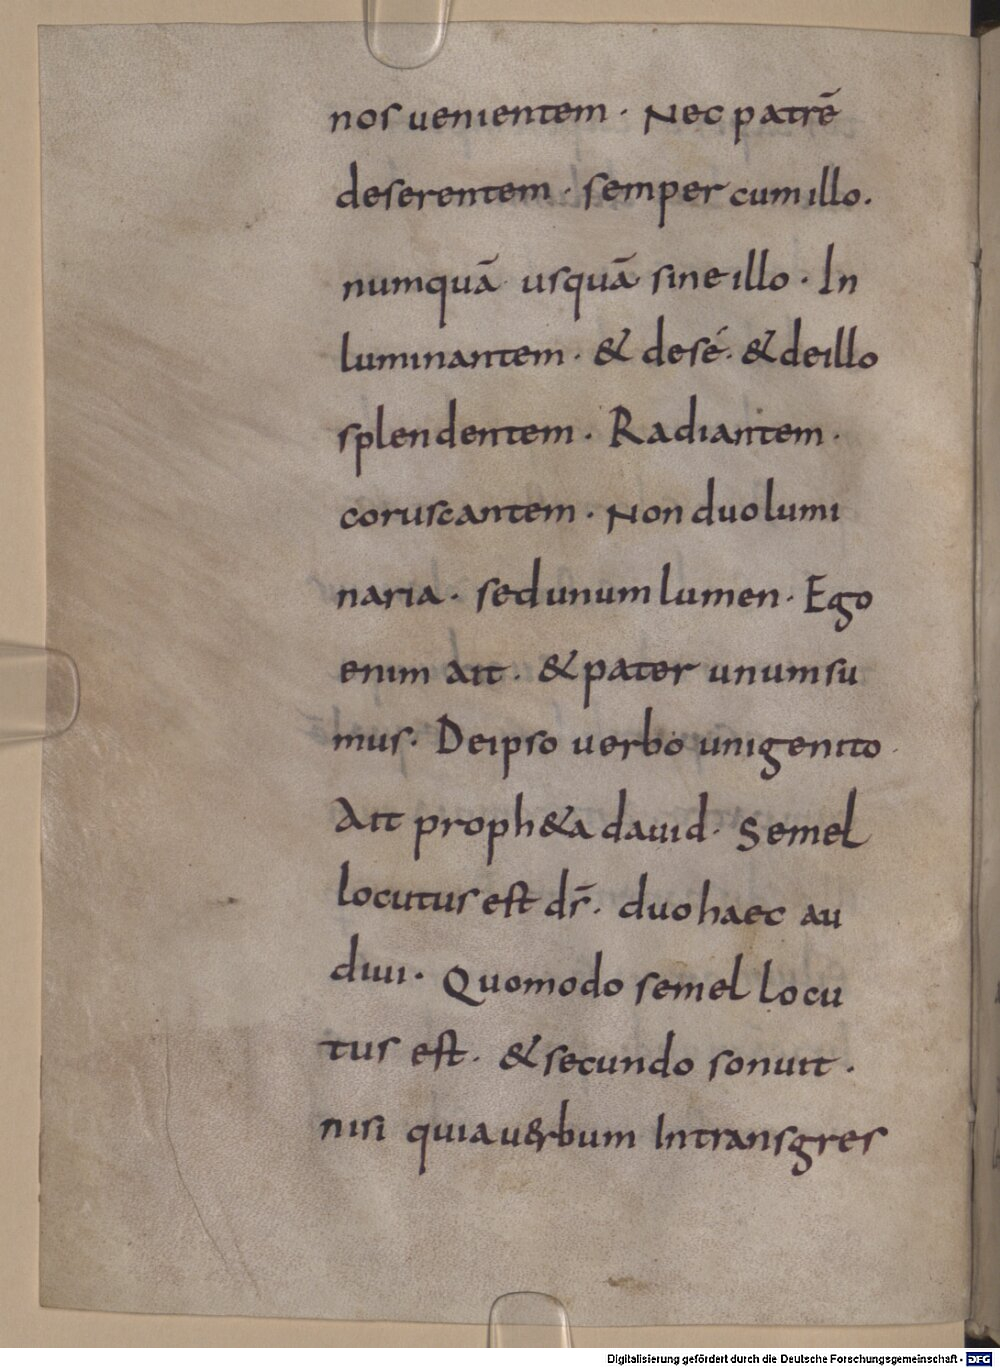 nos uenientem · Nec patrē
deserentem · semper cum illo.
numquā usquā sine illo · In
luminantem · & desé · & deillo
splendentem · Radiantem ·
coruscantem · Non duo lumi
naria · sed unum lumen · Ego
enim ait · & pater unum su
mus · De ipso uerbo unigenito ·
Ait proph&a dauid · Semel
locutus est ds̄ · duo haec au
diui · Quomodo semel locu
tus est · & secundo sonuit ·
nisi quia uerbum Intransgres
Digitalisierung gefördert durch die Deutsche Forschungsgemeinschaft - DFG